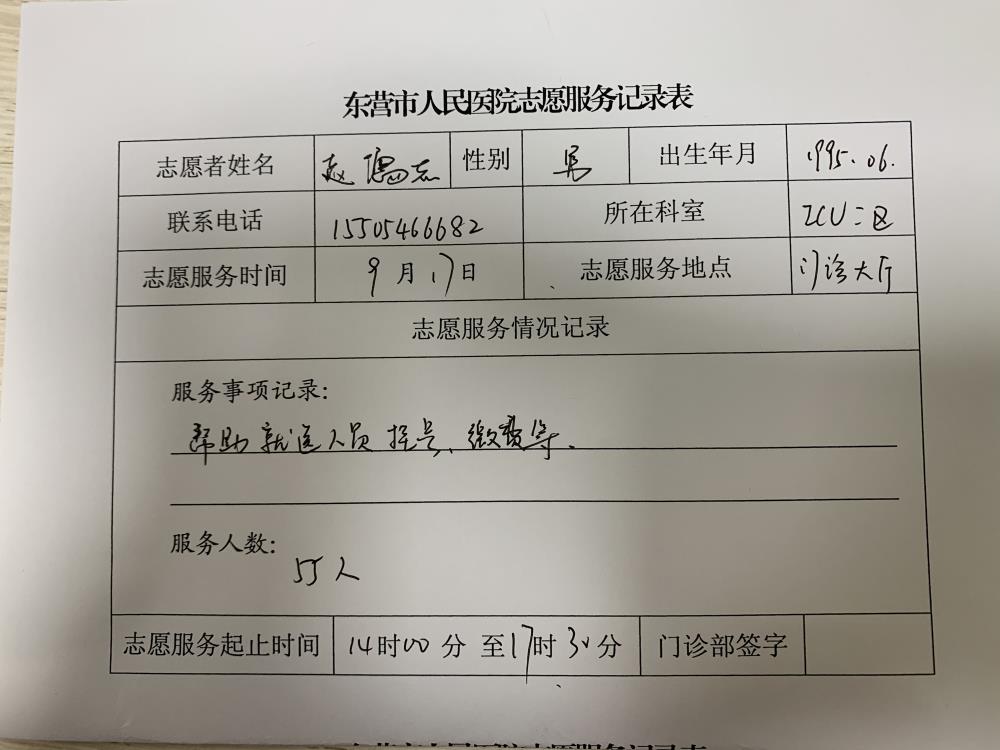 东营市人民医院志愿服务记录表
志愿者姓名 赵儒志 性别 男 出生年月 1995.06.
联系电话 15505466682 所在科室 ICU二区
志愿服务时间 9月17日 志愿服务地点 门诊大厅
志愿服务情况记录
服务事项记录:
帮助就医人员挂号、缴费等.
服务人数:
55人
志愿服务起止时间 14时00分至17时30分 门诊部签字
东营市人民医院志愿服务记录表